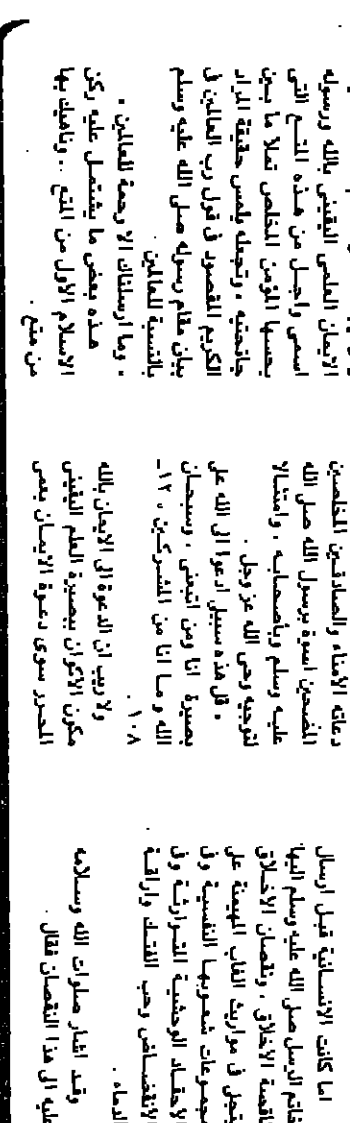 اما كانت الانسانية قبل ارسال
خاتم الرسل صلى الله عليه وسلم اليها
ناقصة الاخلاق ، ونقصان الاخلاق
يتجلى في مواريث الغاب المهيمنة على
مجموعات شعوبها النفسية وفي
الاحقاد الوحشية المتوارثة وفي
الانقضاض وحب الفتك واراقة
الدماء .
وقد اشار صلوات الله وسلامه
عليه الى هذا النقصان فقال .
دعاته الأمناء والصادقين المخلصين
المضحين اسوة برسول الله صلى الله
عليه وسلم وبأصحابه ، وامتثالا
لتوجيه وحي الله عز وجل .
« قل هذه سبيلي ادعوا الى الله على
بصيرة انا ومن اتبعني ، وسبحان
الله وما انا من المشركين » ١٢ ـ
١٠٨ .
ولا ريب ان الدعوة الى الايمان بالله
مكون الأكوان ببصيرة العلم اليقيني
المحرر سوى دعوة الايمان بمعى
الايمان العلمي اليقيني بالله ورسوله
اسمى واجل من هذه المتع التي
يحسها المؤمن المخلص تملأ ما بين
جانحتيه ، وتجعله يلمس حقيقة المراد
الكريم المقصود في قول رب العالمين في
بيان مقام رسوله صلى الله عليه وسلم
بالنسبة للعالمين .
« وما ارسلناك الا رحمة للعالمين »
هذه بعض ما يشتمل عليه ركن
الاسلام الأول من المتع .. وناهيك بها
من متع .